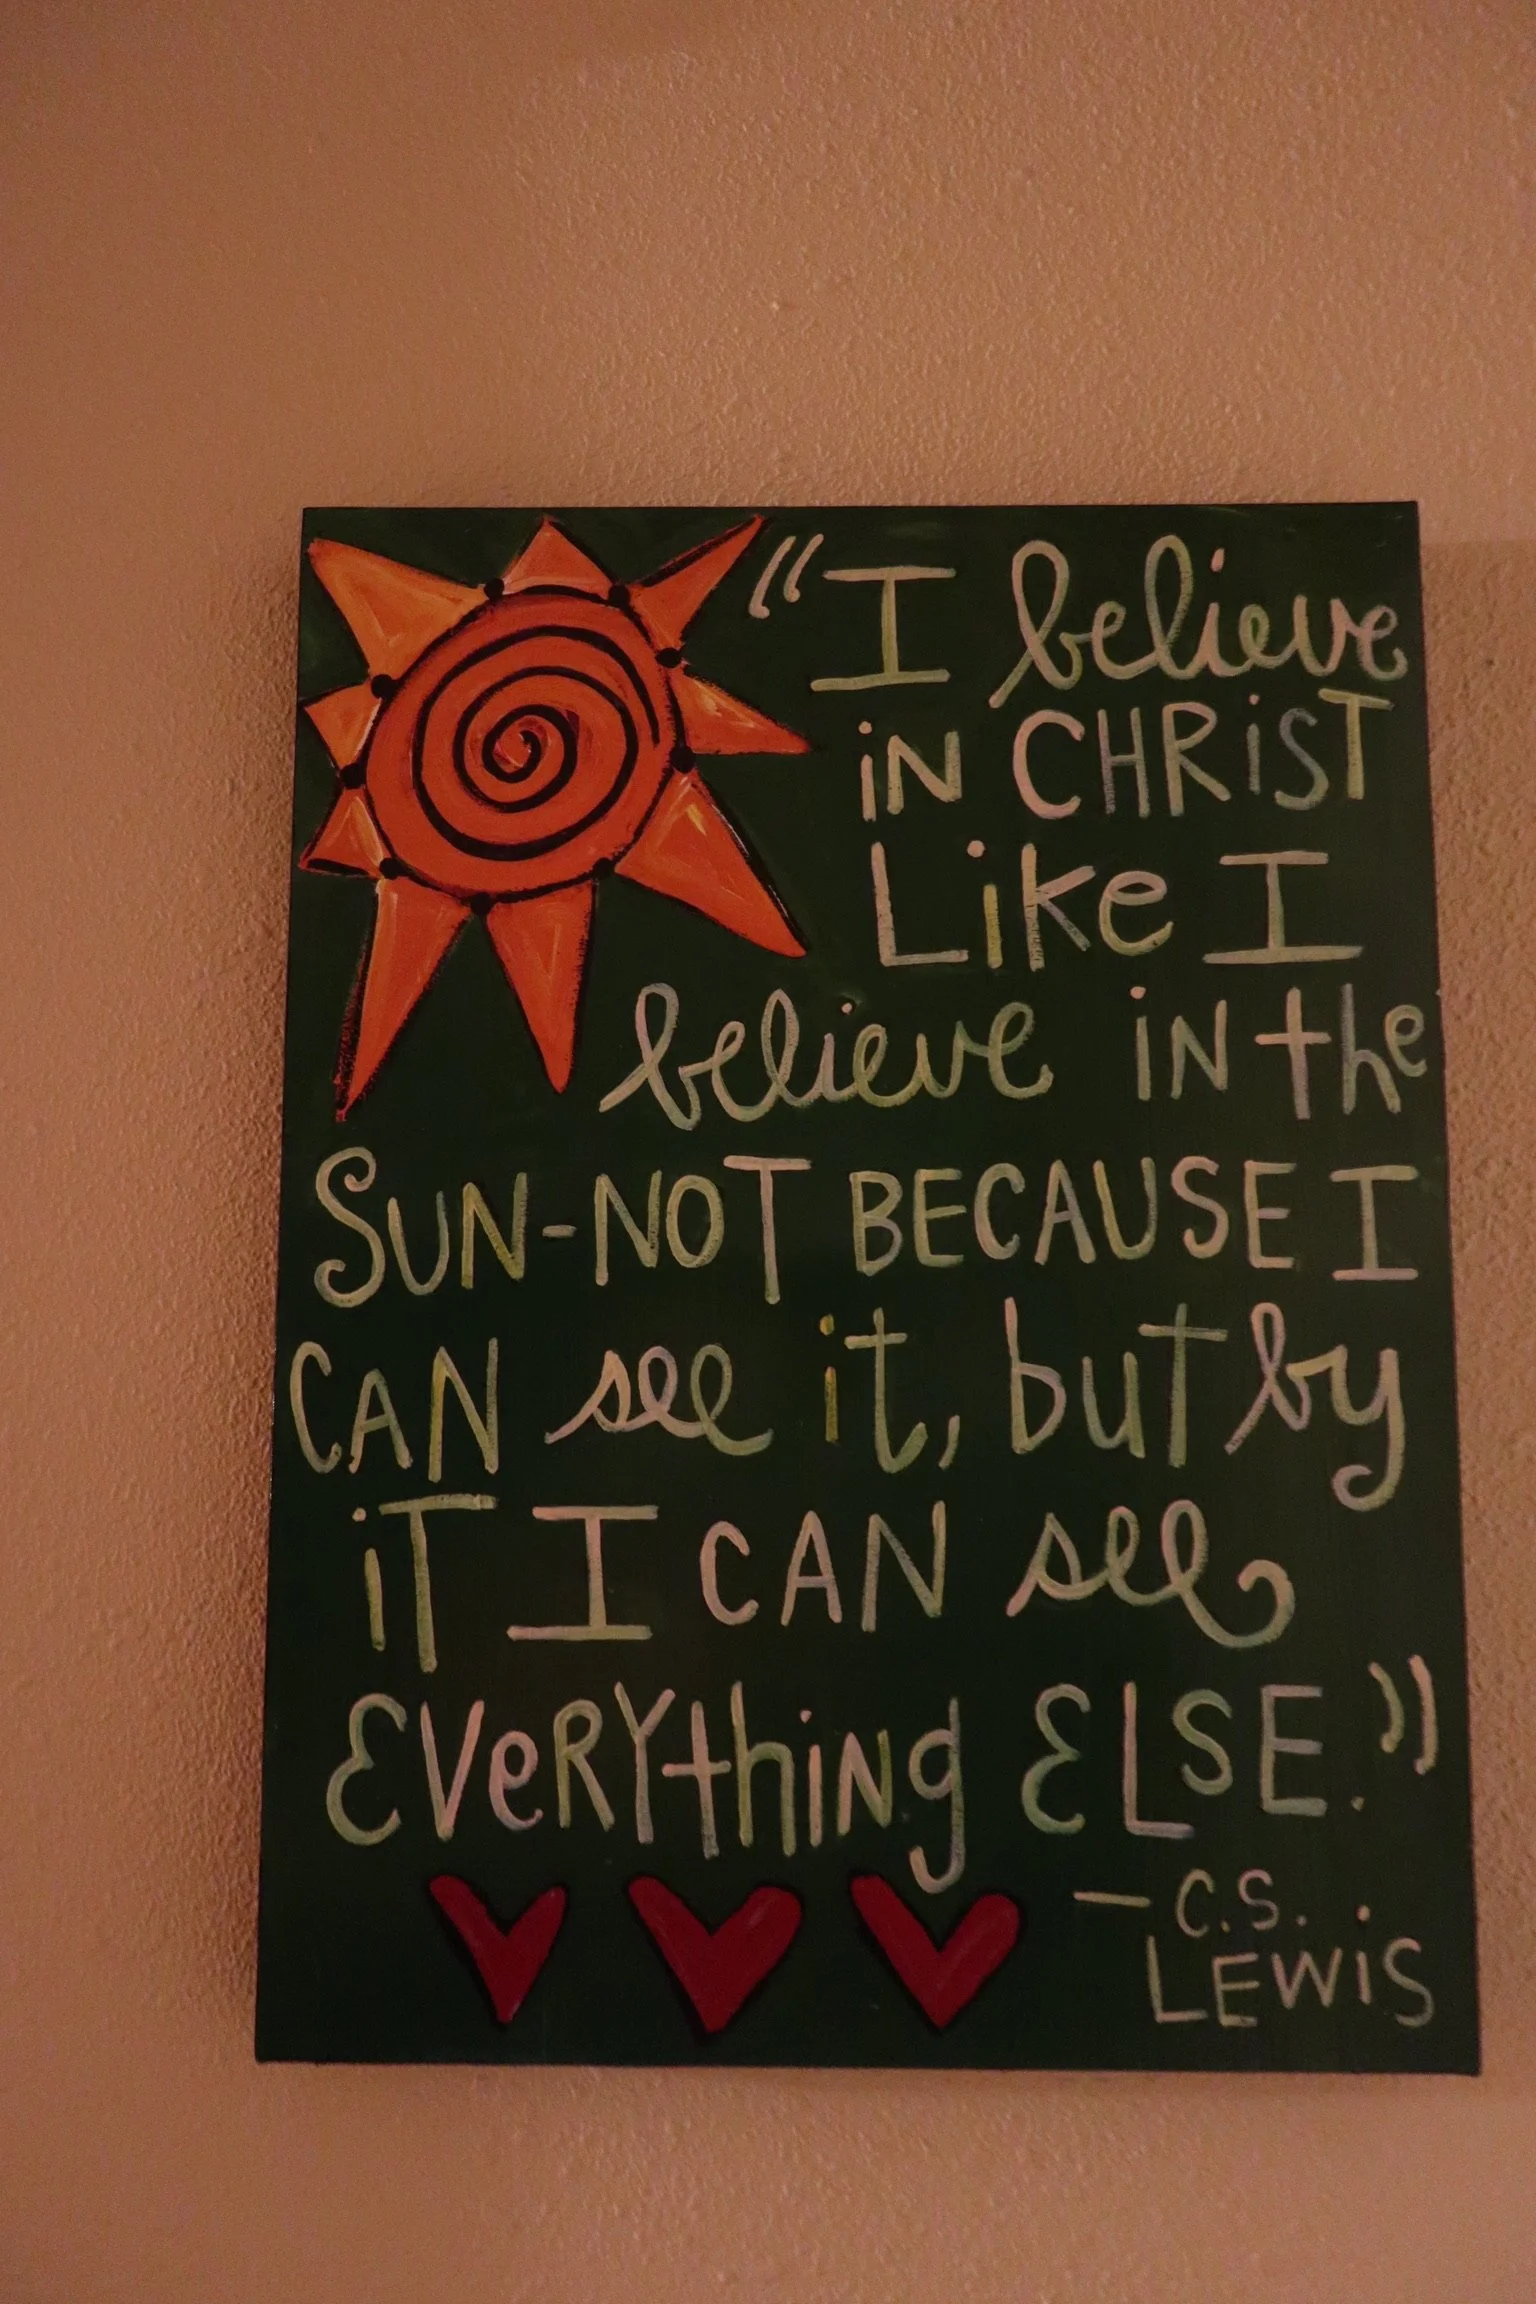 “I believe
iN CHRiST
Like I
believe iN the
SUN-NOT BECAUSE I
CAN see it, buT by
iT I CAN see
EVeRYthiNg ELSE.”
- C.S.
LEWiS